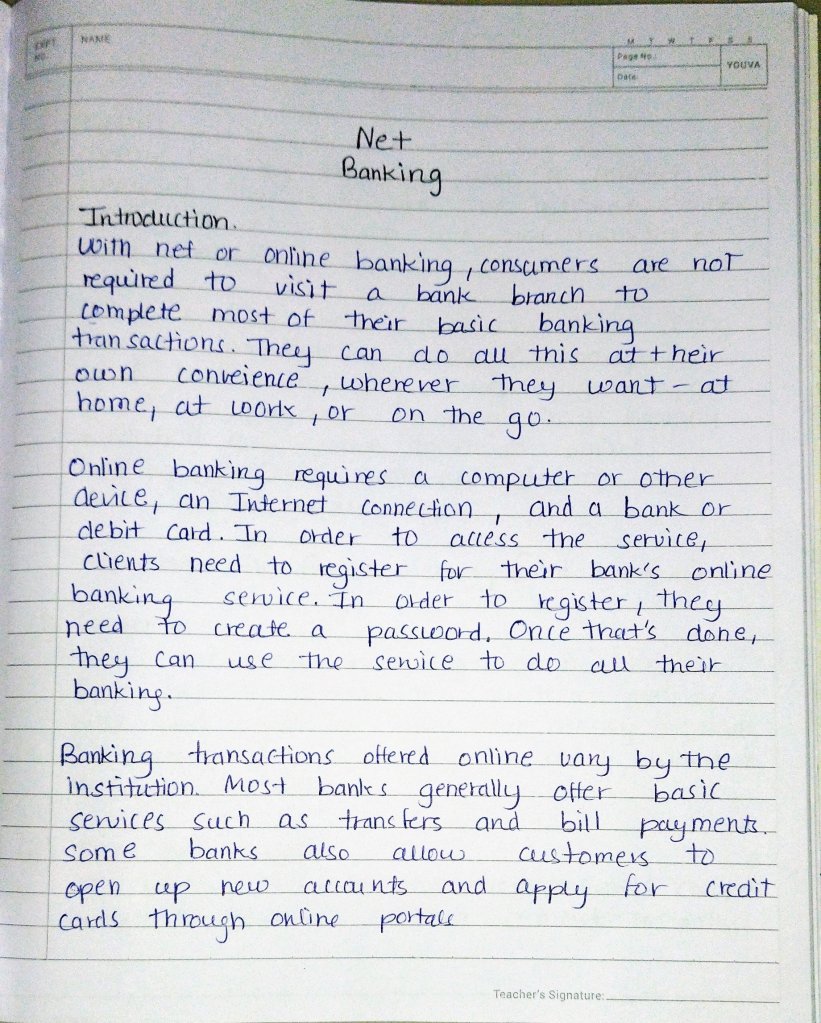 EXPT. NO.
NAME
M T W T F S S
Page No.
Date
YOUVA
Net
Banking
Introduction.
With net or online banking, consumers are not
required to visit a bank branch to
complete most of their basic banking
transactions. They can do all this at their
own conveience, wherever they want - at
home, at work, or on the go.
Online banking requires a computer or other
device, an Internet connection, and a bank or
debit card. In order to access the service,
clients need to register for their bank's online
banking service. In order to register, they
need to create a password. Once that's done,
they can use the service to do all their
banking.
Banking transactions offered online vary by the
institution. Most banks generally offer basic
services such as transfers and bill payments.
Some banks also allow customers to
open up new accounts and apply for credit
cards through online portals
Teacher's Signature: